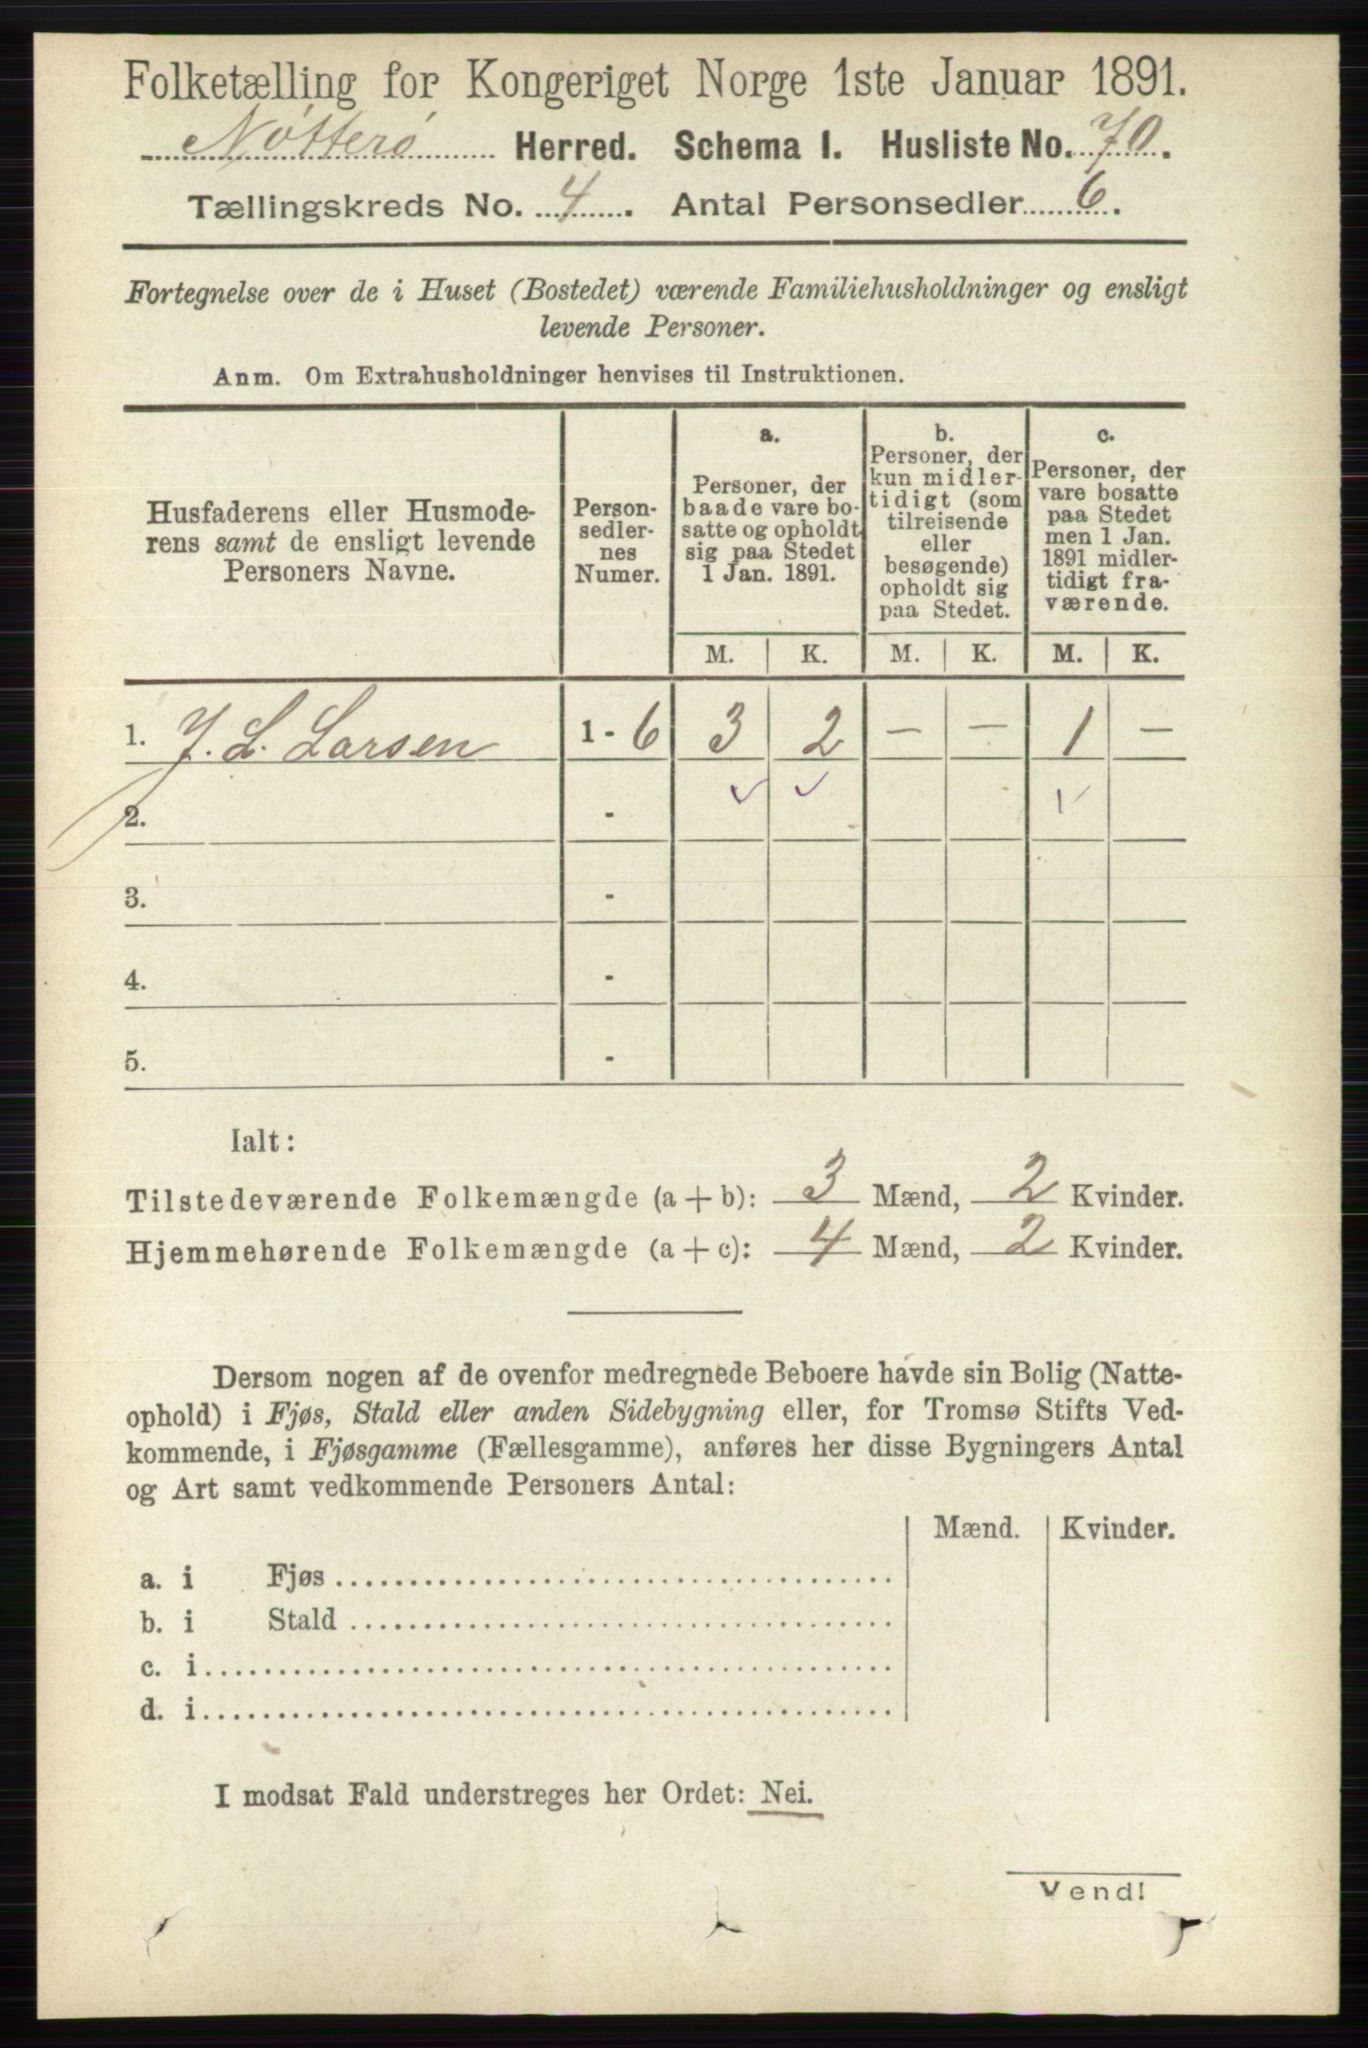 Folketælling for Kongeriget Norge 1ste Januar 1891.
Nøtterø Herred. Schema I. Husliste No. 70.
Tællingskreds No. 4. Antal Personsedler 6.
Fortegnelse over de i Huset (Bostedet) værende Familiehusholdninger og ensligt
levende Personer.
Anm. Om Extrahusholdninger henvises til Instruktionen.
Husfaderens eller Husmode-
rens samt de ensligt levende
Personers Navne.
Person-
sedler-
nes
Numer.
a.
Personer, der
baade vare bo-
satte og opholdt
sig paa Stedet
1 Jan. 1891.
b.
Personer, der
kun midler-
tidigt (som
tilreisende
eller
besøgende)
opholdt sig
paa Stedet.
c.
Personer, der
vare bosatte
paa Stedet
men 1 Jan.
1891 midler-
tidigt fra-
værende.
M. K. M. K. M. K.
1. J. L. Larsen 1 - 6 3 2 — — 1 —
2. -
3. -
4. -
5. -
Ialt:
Tilstedeværende Folkemængde (a + b): 3 Mænd, 2 Kvinder.
Hjemmehørende Folkemængde (a + c): 4 Mænd, 2 Kvinder.
Dersom nogen af de ovenfor medregnede Beboere havde sin Bolig (Natte-
ophold) i Fjøs, Stald eller anden Sidebygning eller, for Tromsø Stifts Ved-
kommende, i Fjøsgamme (Fællesgamme), anføres her disse Bygningers Antal
og Art samt vedkommende Personers Antal:
Mænd. Kvinder.
a. i Fjøs
b. i Stald
c. i
d. i
I modsat Fald understreges her Ordet: Nei.
Vend!